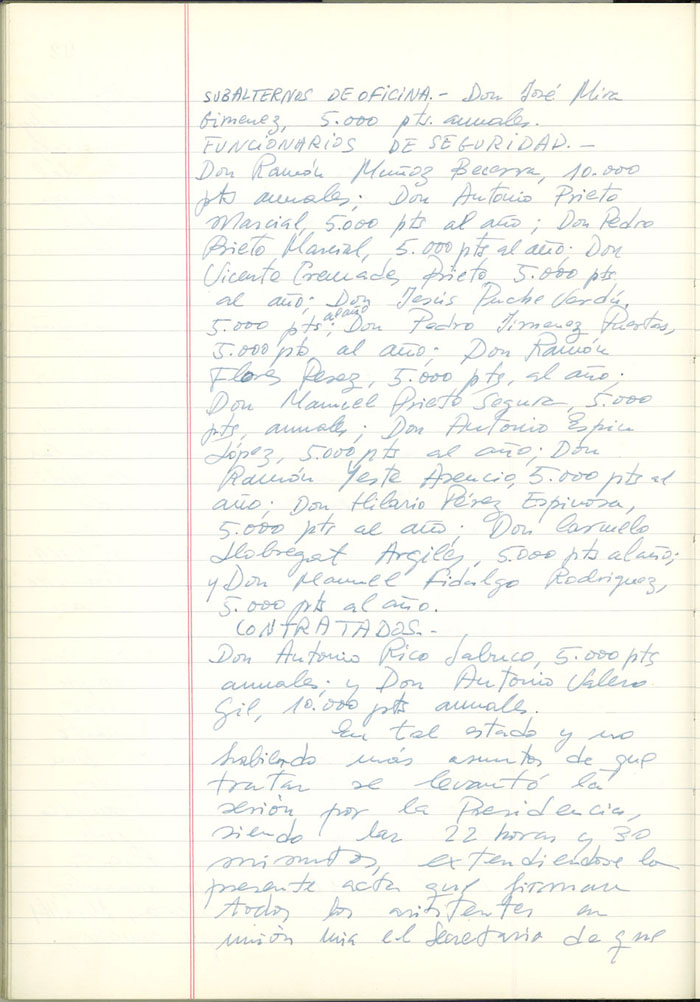 SUBALTERNOS DE OFICINA.- Don José Mira
Gimenez, 5.000 pts. anuales.
FUNCIONARIOS DE SEGURIDAD.-
Don Ramón Muñoz Becerra, 10.000
pts anuales; Don Antonio Prieto
Marcial, 5.000 pts al año; Don Pedro
Prieto Marcial, 5.000 pts al año; Don
Vicente Cremades Prieto, 5.000 pts
al año; Don Jesús Puche Verdú,
5.000 pts al año; Don Pedro Jimenez Puertas,
5.000 pts al año; Don Ramón
Flores Perez, 5.000 pts, al año;
Don Manuel Prieto Segura, 5.000
pts, anuales; Don Antonio Espin
López, 5.000 pts al año; Don
Ramón Yeste Asencio, 5.000 pts al
año; Don Hilario Pérez Espinosa,
5.000 pts al año; Don Carmelo
Llobregat Argiles, 5.000 pts al año;
y Don Manuel Fidalgo Rodriguez,
5.000 pts al año.
CONTRATADOS.-
Don Antonio Rico Sabuco, 5.000 pts
anuales; y Don Antonio Valero
Gil, 10.000 pts anuales.
En tal estado y no
habiendo más asuntos de que
tratar se levantó la
sesión por la Presidencia,
siendo las 22 horas y 30
minutos, extendiendose la
presente acta que firman
todos los asistentes en
unión mia el Secretario de que